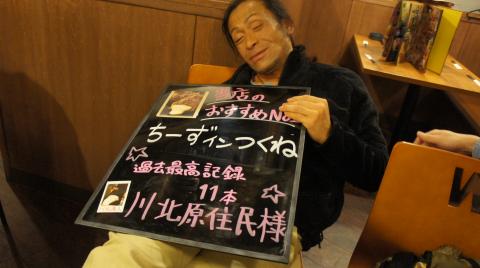 当店の
おすすめNo.1
ちーずインつくね
過去最高記録
11本
川北原住民様